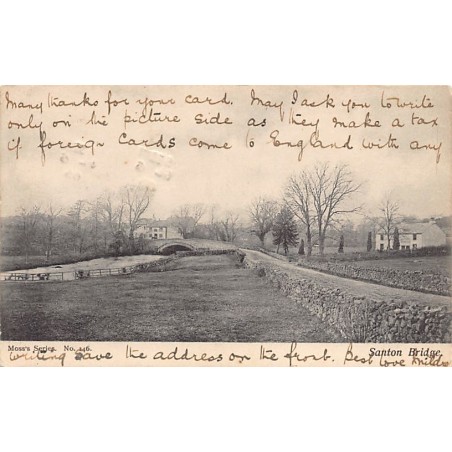 Many thanks for your card. May I ask you to write
only on the picture side as they make a tax
if foreign cards come to England with any
Moss's Series. No. 146.
Santon Bridge.
writing save the address on the front. Best love